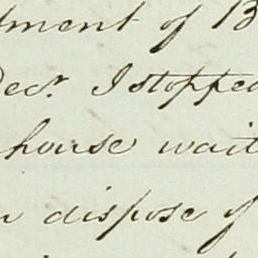 tment of B
Decr. I stopped
house wait
dispose of